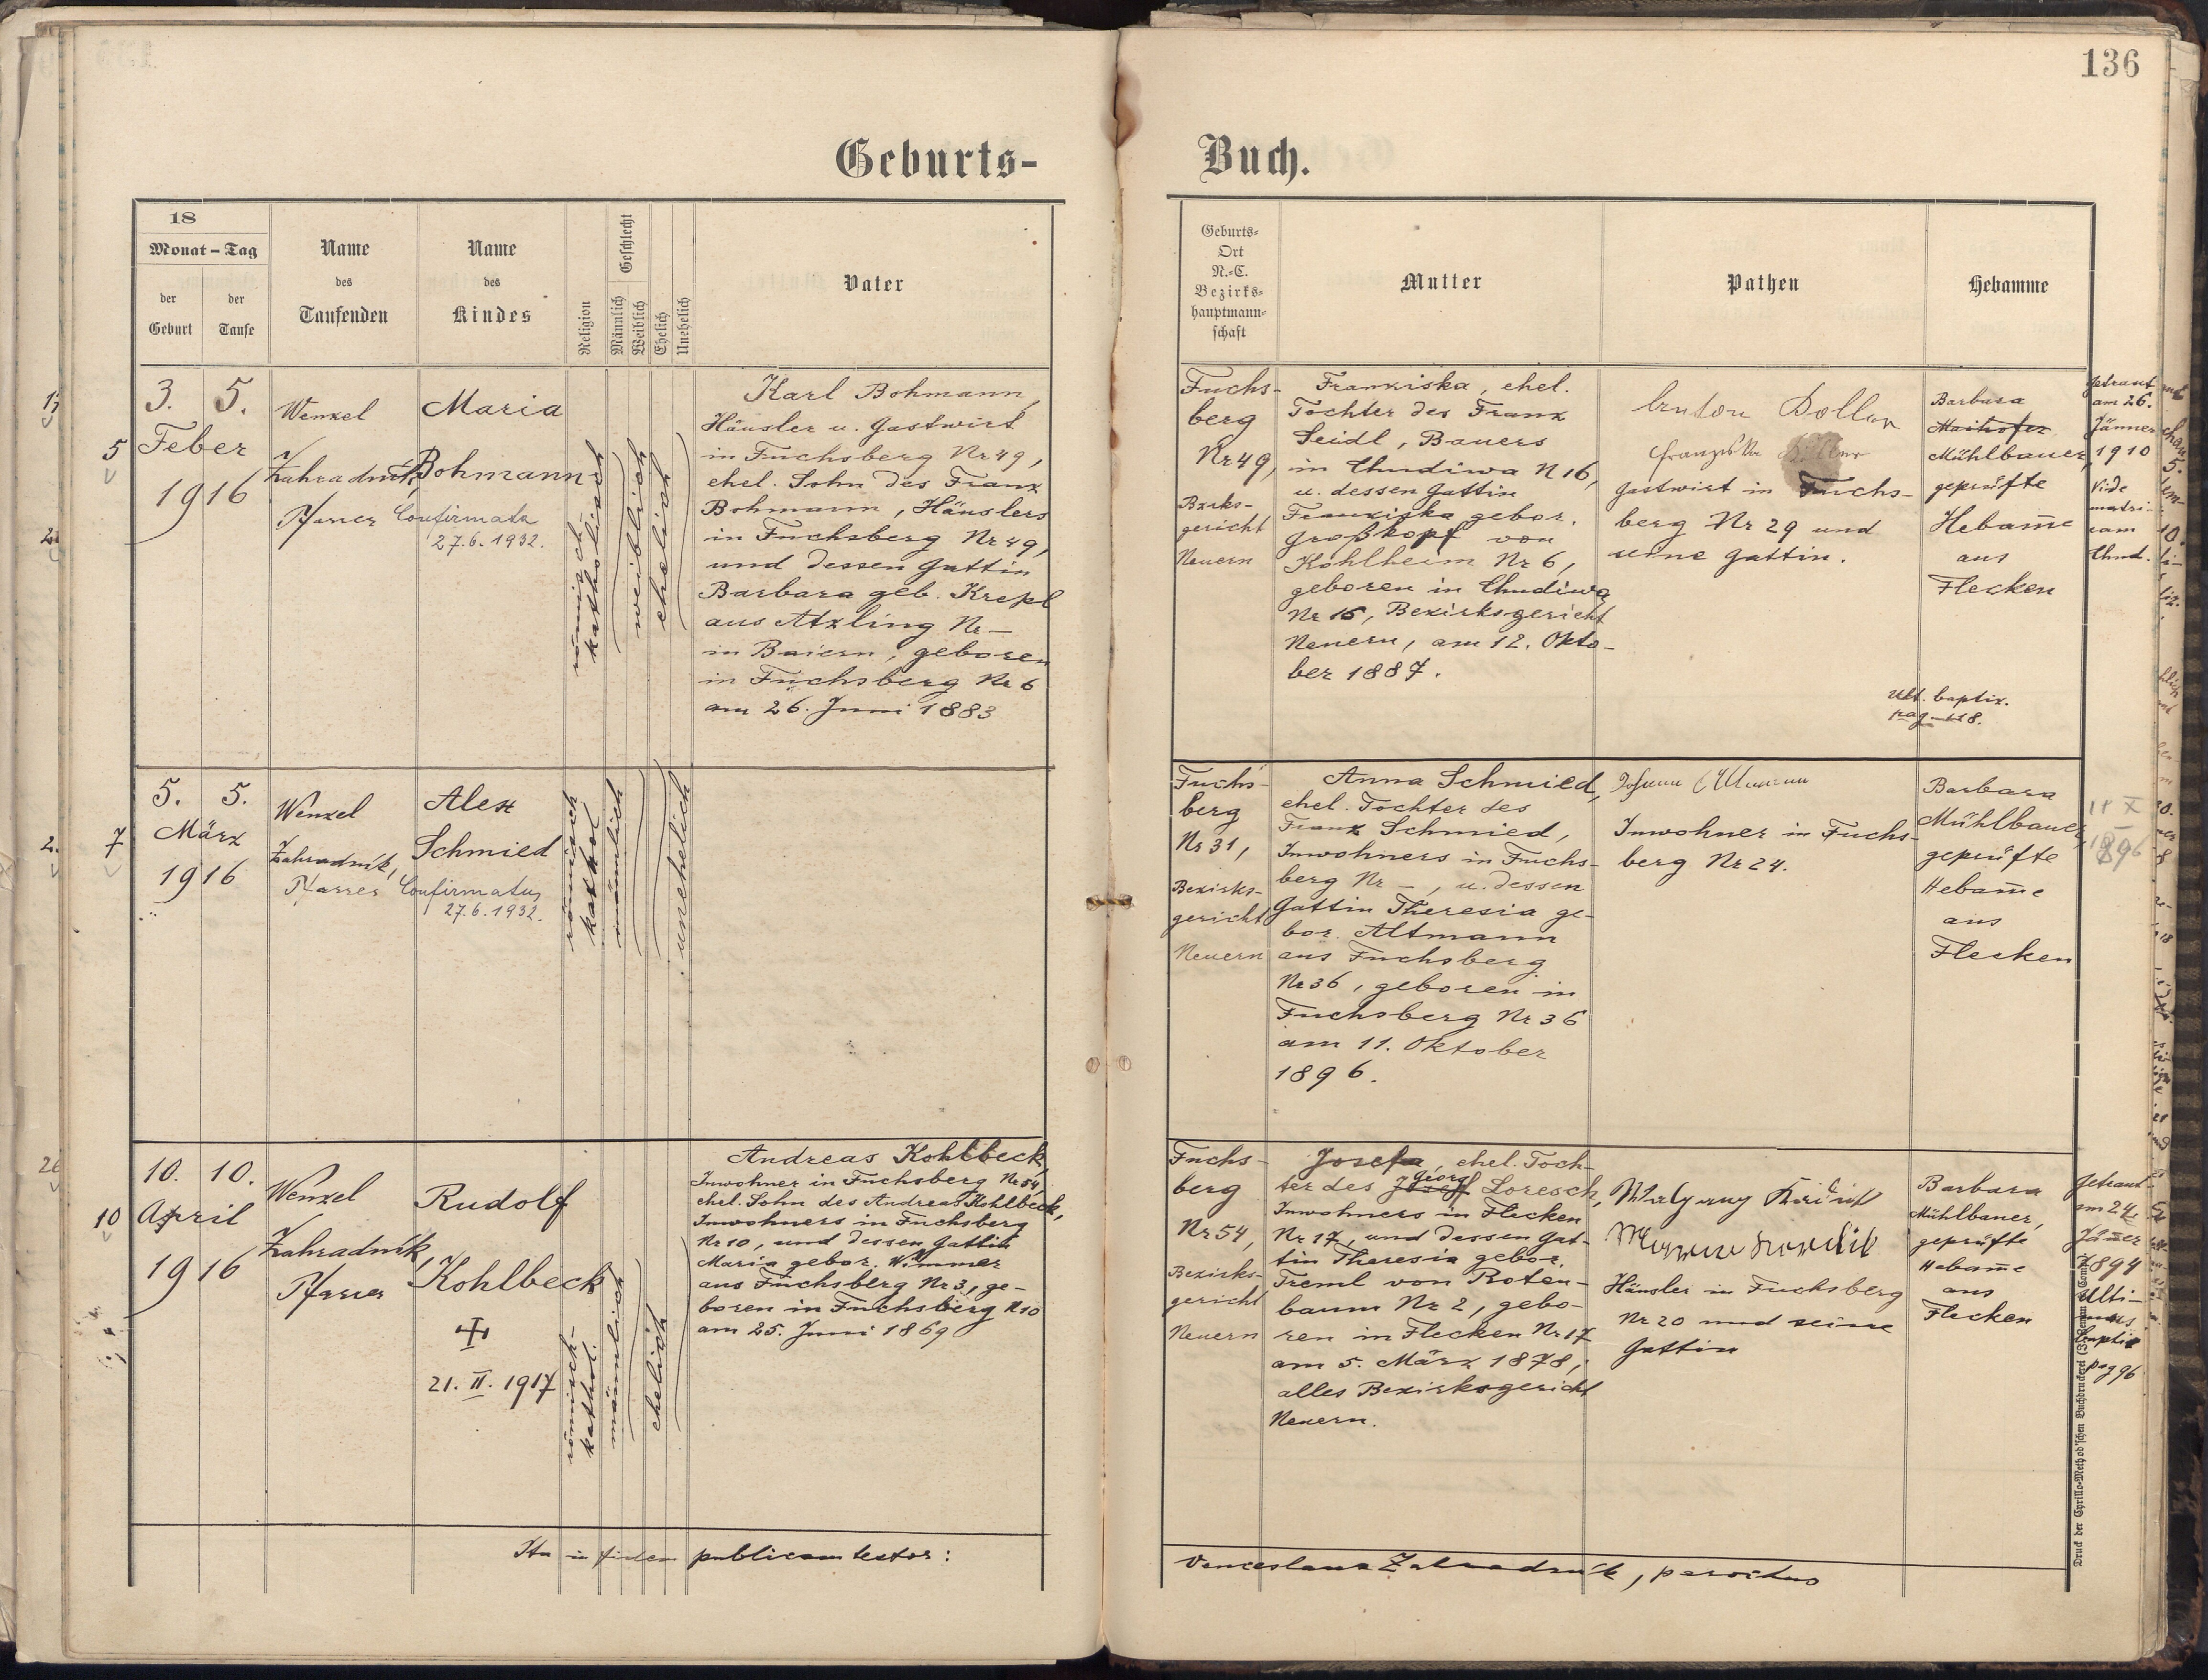 136
Geburts-
Buch.
18
Monat - Tag
der Geburt
der Taufe
Name
des
Taufenden
Name
des
Kindes
Religion
Geschlecht
Männlich
Weiblich
Ehelich
Unehelich
Vater
Geburts-
Ort
N.-C.
Bezirks-
hauptmann-
schaft
Mutter
Pathen
Hebamme
5
3. 5.
Feber
1916
Wenzel
Zahradník,
Pfarrer
Maria
Bohmann
Confirmata
27.6.1932.
römisch-
katholisch
weiblich
ehelich
Karl Bohmann,
Häusler u. Gastwirt
in Fuchsberg Nr 49,
ehel. Sohn des Franz
Bohmann, Häuslers
in Fuchsberg Nr 49,
und dessen Gattin
Barbara geb. Krepl
aus Atzling Nr —
in Baiern, geboren
in Fuchsberg Nr 6
am 26. Juni 1883
Fuchs-
berg
Nr 49,
Bzrks-
gericht
Neuern
Franziska, ehel.
Tochter des Franz
Seidl, Bauers
in Chudiwa N 16,
u. dessen Gattin
Franziska gebor.
Großkopf von
Kohlheim Nr 6,
geboren in Chudiwa
Nr 16, Bezirksgericht
Neuern, am 12. Okto-
ber 1887.
Anton
Gastwirt in Fuchs-
berg Nr 29 und
seine Gattin.
Barbara
Maihofer
Mühlbauer,
geprüfte
Hebam̄e
aus
Flecken
Ult. baptiz.
pag. 118.
getraut
am 26.
Jänner
1910
Vide
matri-
cam
Chud.
7
5. 5.
März
1916
Wenzel
Zahradník,
Pfarrer
Alex
Schmied
Confirmatus
27.6.1932.
römisch
kathol
männlich
unehelich
Fuchs-
berg
Nr 31,
Bezirks-
gericht
Neuern
Anna Schmied,
ehel. Tochter des
Franz Schmied,
Inwohners in Fuchs-
berg Nr —, u. dessen
Gattin Theresia ge-
bor. Altmann
aus Fuchsberg
Nr 36, geboren in
Fuchsberg Nr 36
am 11. Oktober
1896.
Johann Altmann
Inwohner in Fuchs-
berg Nr 24.
Barbara
Mühlbauer,
geprüfte
Hebam̄e
aus
Flecken
11 X
1896
10
10. 10.
April
1916
Wenzel
Zahradník,
Pfarrer
Rudolf
Kohlbeck
21. II. 1917
römisch-
kathol.
männlich
ehelich
Andreas Kohlbeck,
Inwohner in Fuchsberg Nr 54,
ehel. Sohn des Andreas Kohlbeck,
Inwohners in Fuchsberg
Nr 10, und dessen Gattin
Maria gebor. Wimmer
aus Fuchsberg Nr 3, ge-
boren in Fuchsberg N 10
am 25. Juni 1869
Fuchs-
berg
Nr 54,
Bezirks-
gericht
Neuern
Josefa, ehel. Toch-
ter des Josef Georg Loresch,
Inwohners in Flecken
Nr 17, und dessen Gat-
tin Theresia gebor.
Treml von Roten-
baum Nr 2, gebo-
ren in Flecken Nr 17
am 5. März 1878,
alles Bezirksgericht
Neuern.
Häusler in Fuchsberg
Nr 20 und seine
Gattin
Barbara
Mühlbauer,
geprüfte
Hebam̄e
aus
Flecken
Getraut
am 24.
Jän̄er
1894
Ulti-
mus
baptiz
pag 96
Ita in fidem publicam testor:
Venceslaus Zahradník, parochus
Druck der Cyrillo-Method'schen Buchdruckerei